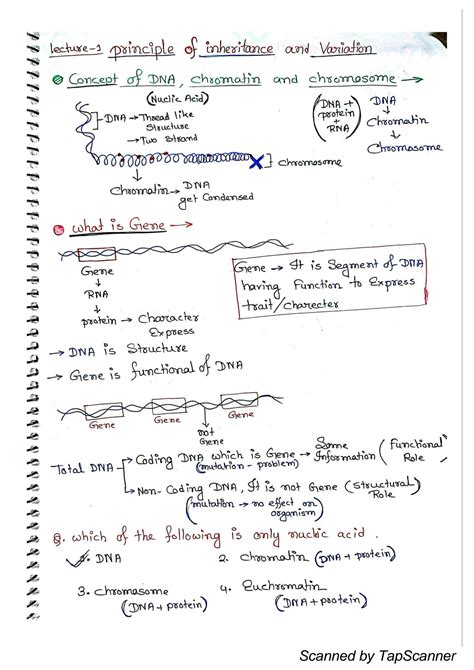 lecture-1 principle of inheritance and Variation
Concept of DNA, chromatin and chromosome →
(Nuclic Acid)
DNA → Thread like
Structure
→ Two Strand
(DNA + protein + RNA)
DNA
↓
Chromatin
↓
Chromosome
Chromosome
Chromatin → DNA
get Condensed
What is Gene →
Gene
↓
RNA
↓
protein → Character
Express
Gene → It is Segment of DNA
having Function to Express
trait/Charecter
→ DNA is Structure
→ Gene is functional of DNA
Gene Gene Gene
not
Gene
Total DNA → Coding DNA which is Gene → Some Information (Functional Role)
(mutation - problem)
→ Non-Coding DNA, It is not Gene (Structural Role)
(mutation → no effect on
organism)
Q. which of the following is only nucleic acid.
1. DNA 2. Chromatin (DNA + protein)
3. chromosome 4. Euchromatin
(DNA + protein) (DNA + protein)
Scanned by TapScanner